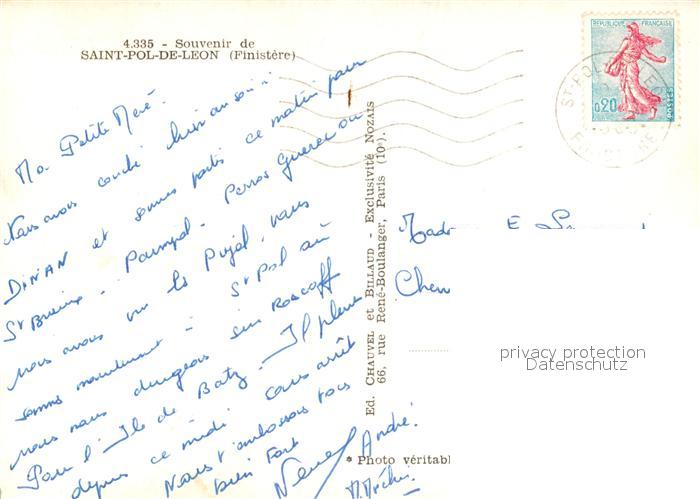 4.335 - Souvenir de
SAINT-POL-DE-LEON (Finistère)
REPUBLIQUE FRANÇAISE
0,20
POSTES
Ma Petite Mémé.
Nous avons couché hier au soir à
DINAN et sommes partis ce matin pour
St Brieuc - Paimpol - Perros Guerec ou
nous avons vu les Pujol, nous
sommes maintenant à St Pol où
nous nous dirigeons sur Roscoff
Pour l'Ile de Batz - Il pleut
depuis ce midi sans arrêt
Nous t'embrassons tous
bien Fort
André
Ed. CHAUVEL et BILLAUD - Exclusivité NOZAIS
66, rue René-Boulanger, Paris (10e).
Madr E
Chem
privacy protection
Datenschutz
* Photo véritabl